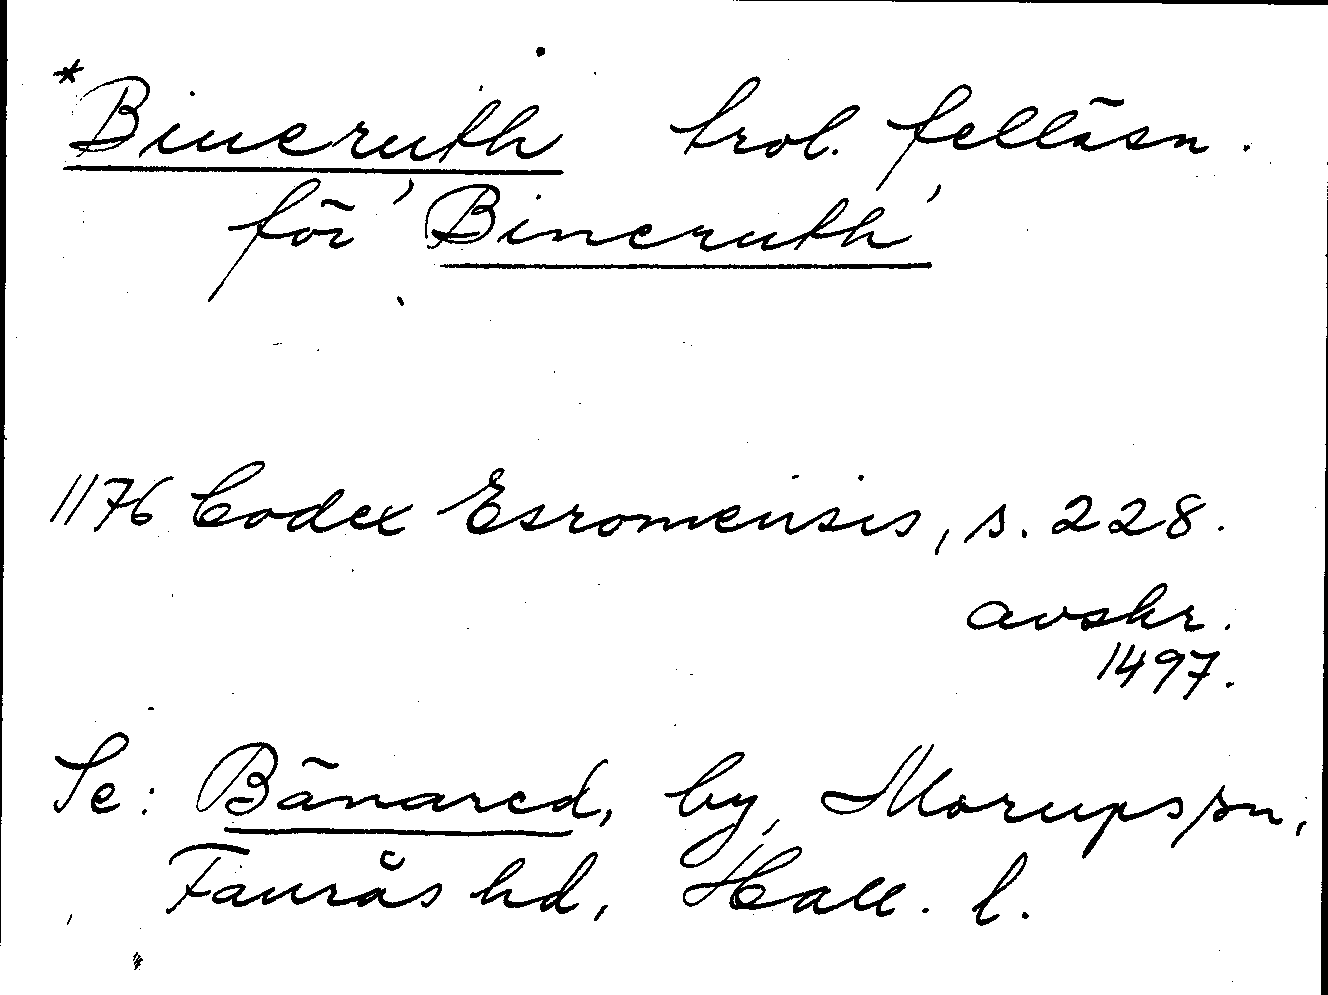 *Biueruth trol. felläsn.
för 'Bineruth'
1176 Codex Esromensis, s. 228.
avskr.
1497.
Se: Bänared, by, Morups sn,
Faurås hd, Hall. l.